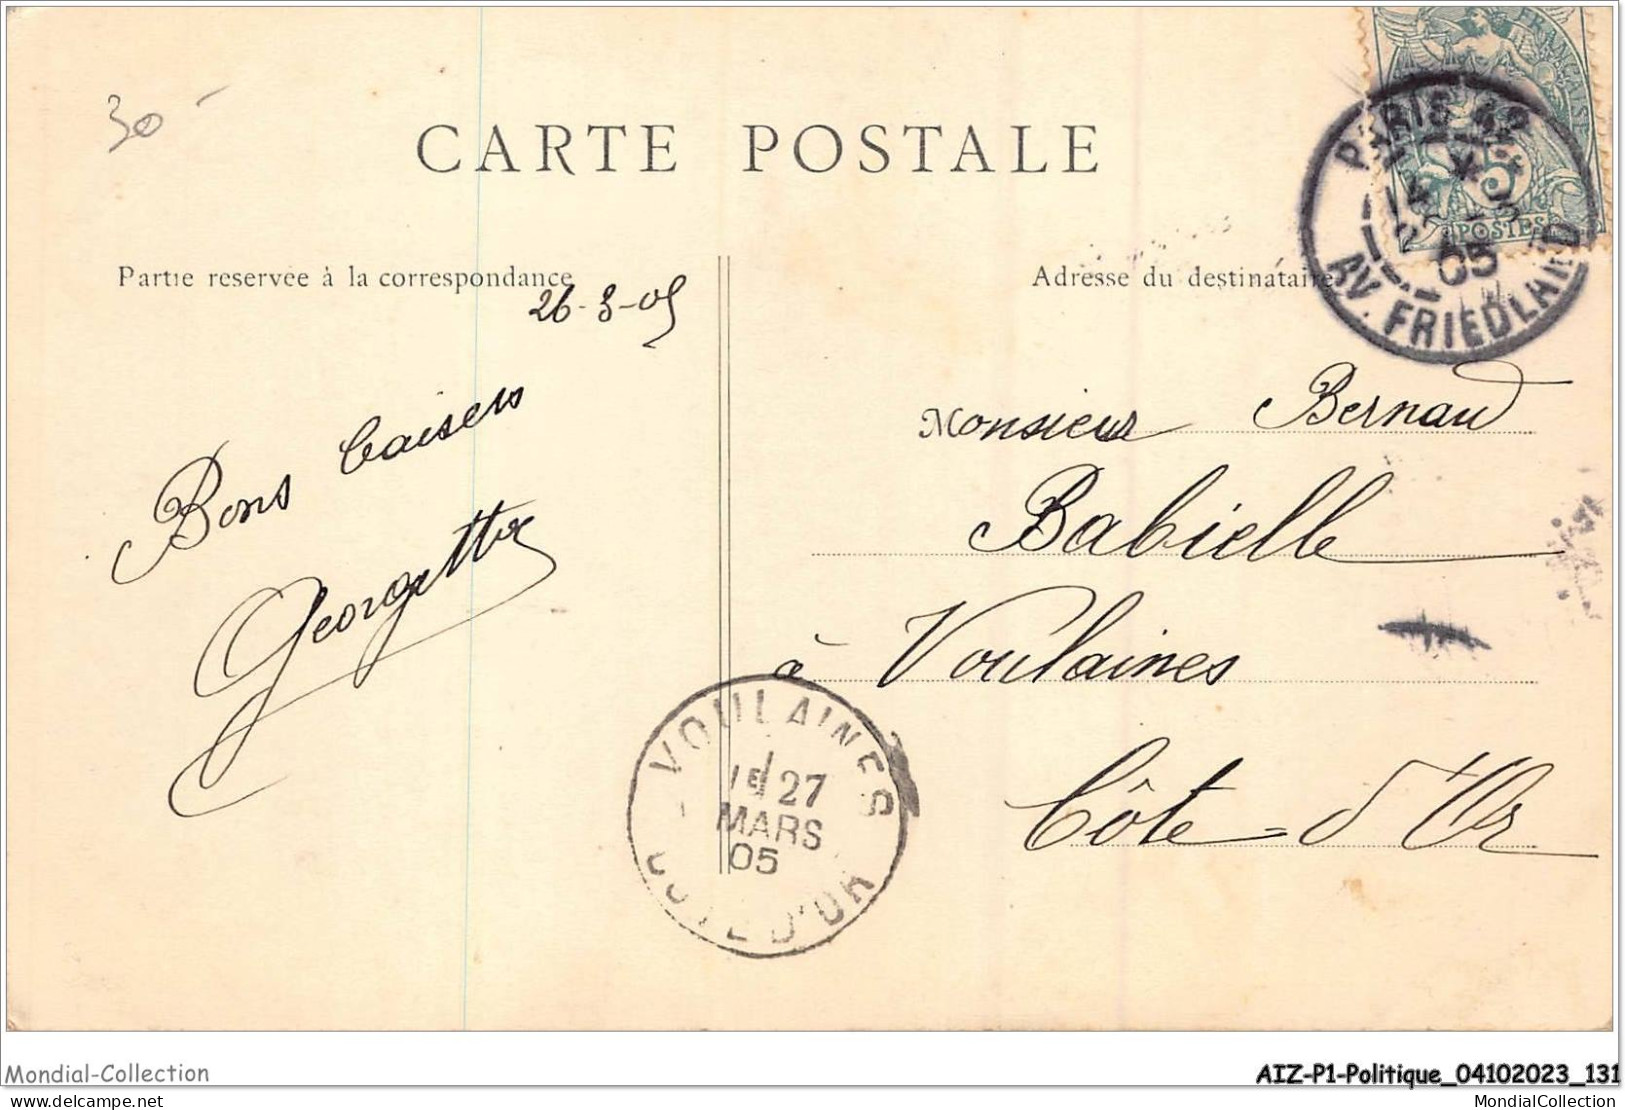 30
CARTE POSTALE
Partie reservée à la correspondance
Adresse du destinataire
26-3-05
Bons baisers
Georgette
Monsieur Bernard
Babielle
à Voulaines
Côte-d'Or
FRANÇAISE
5
POSTES
PARIS 42
05
AV. FRIEDLAND
VOULAINES
1E 27
MARS
05
COTE D'OR
Mondial-Collection
AIZ-P1-Politique_04102023_131
delcampe.net
MondialCollection